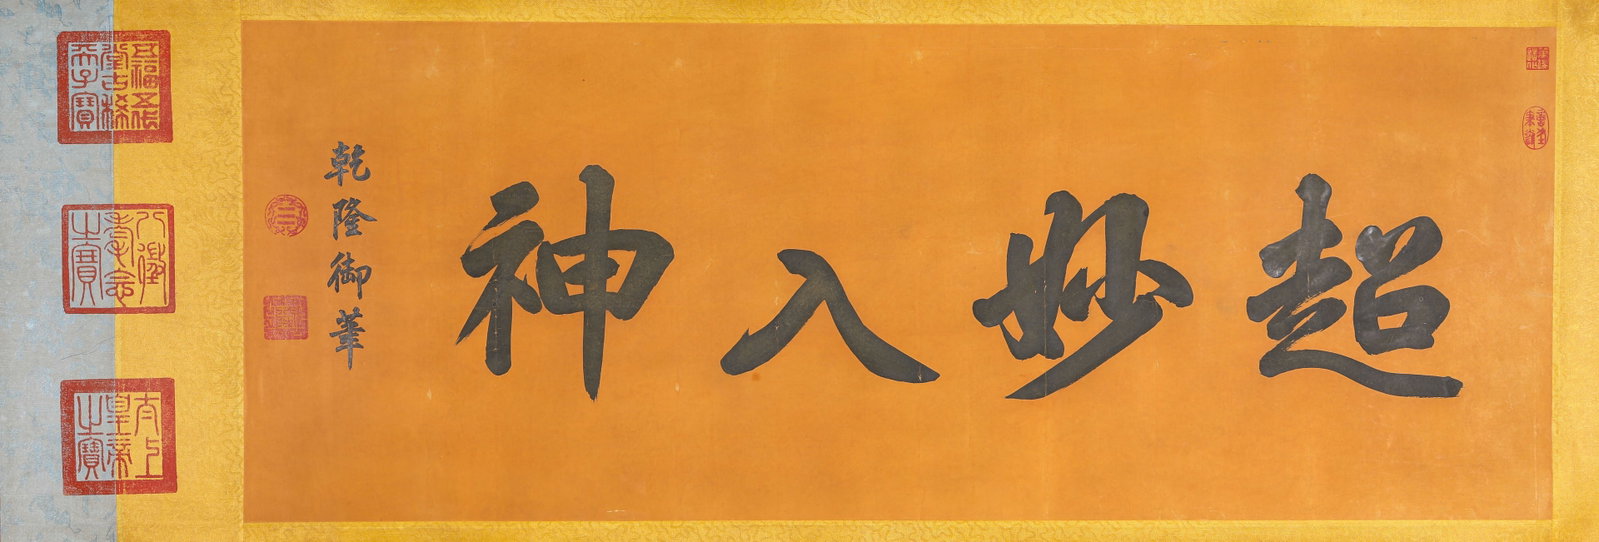 超妙入神
乾隆御筆
五福五代
堂古稀
天子寶
八徵
耄念
之寶
太上
皇帝
之寶